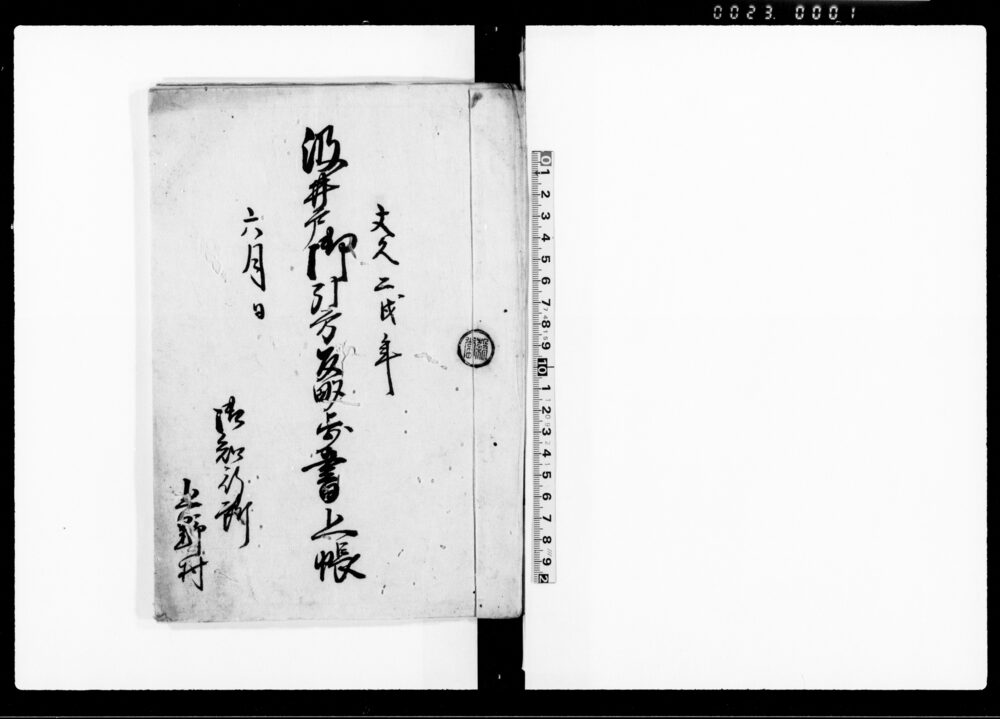 0023 0001
文久二戌年
汲井戸御引方反畝歩書上帳
六月日
御知行所
上野村
0 1 2 3 4 5 6 7 8 9 10 1 2 3 4 5 6 7 8 9 2